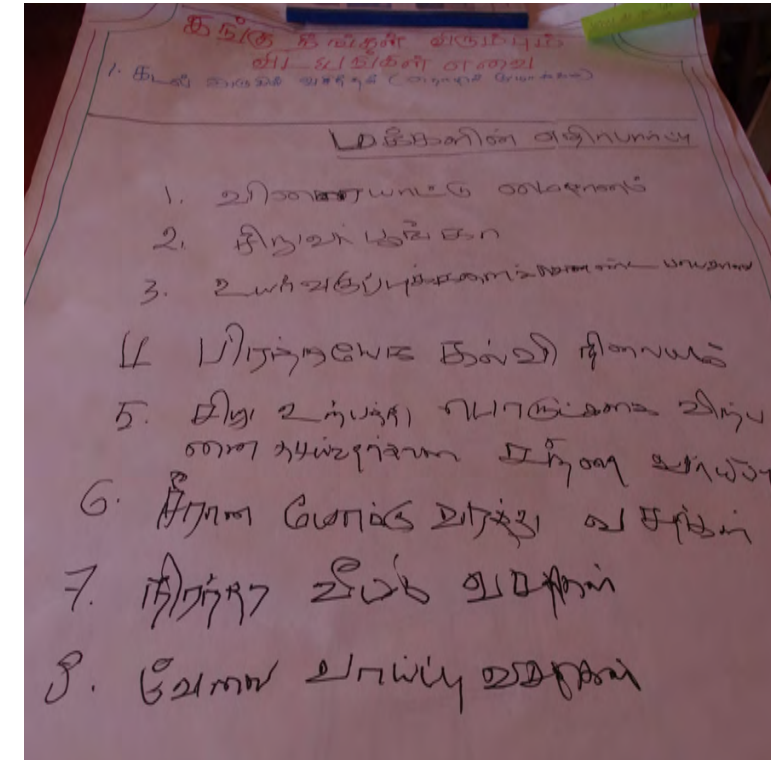 இங்கு நீங்கள் விரும்பும்
விடயங்கள் எவை
1. கடல் அருகில் வசித்தல் (
மக்களின் எதிர்பார்ப்பு
1. விளையாட்டு மைதானம்
2. சிறுவர் பூங்கா
3. உயர் வகுப்புக்களைக்கொண்ட பாடசாலை
4 பிரத்தியேக கல்வி நிலையம்
5. சிறு உற்பத்தி பொருட்களை விற்ப
னை செய்வதற்கான சந்தை வாய்ப்பு
6. சீரான போக்கு வரத்து வசதிகள்
7. நிரந்தர வீட்டு வசதிகள்
8. வேலை வாய்ப்பு வசதிகள்